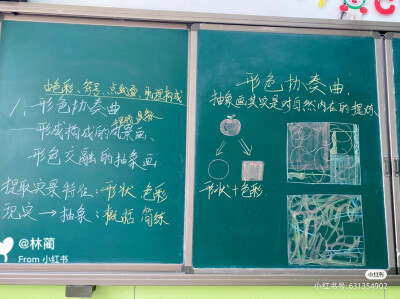 由色彩、符号、点线面、
1、形色协奏曲
形成构成的风景画、
形色交融的抽象画
提取实景特征:形状 色彩
现实→抽象:概括 简练
形色协奏曲.
抽象画其实是对自然内在的提炼
形状+色彩
@林蔺
From 小红书
小红书
小红书号:631354902